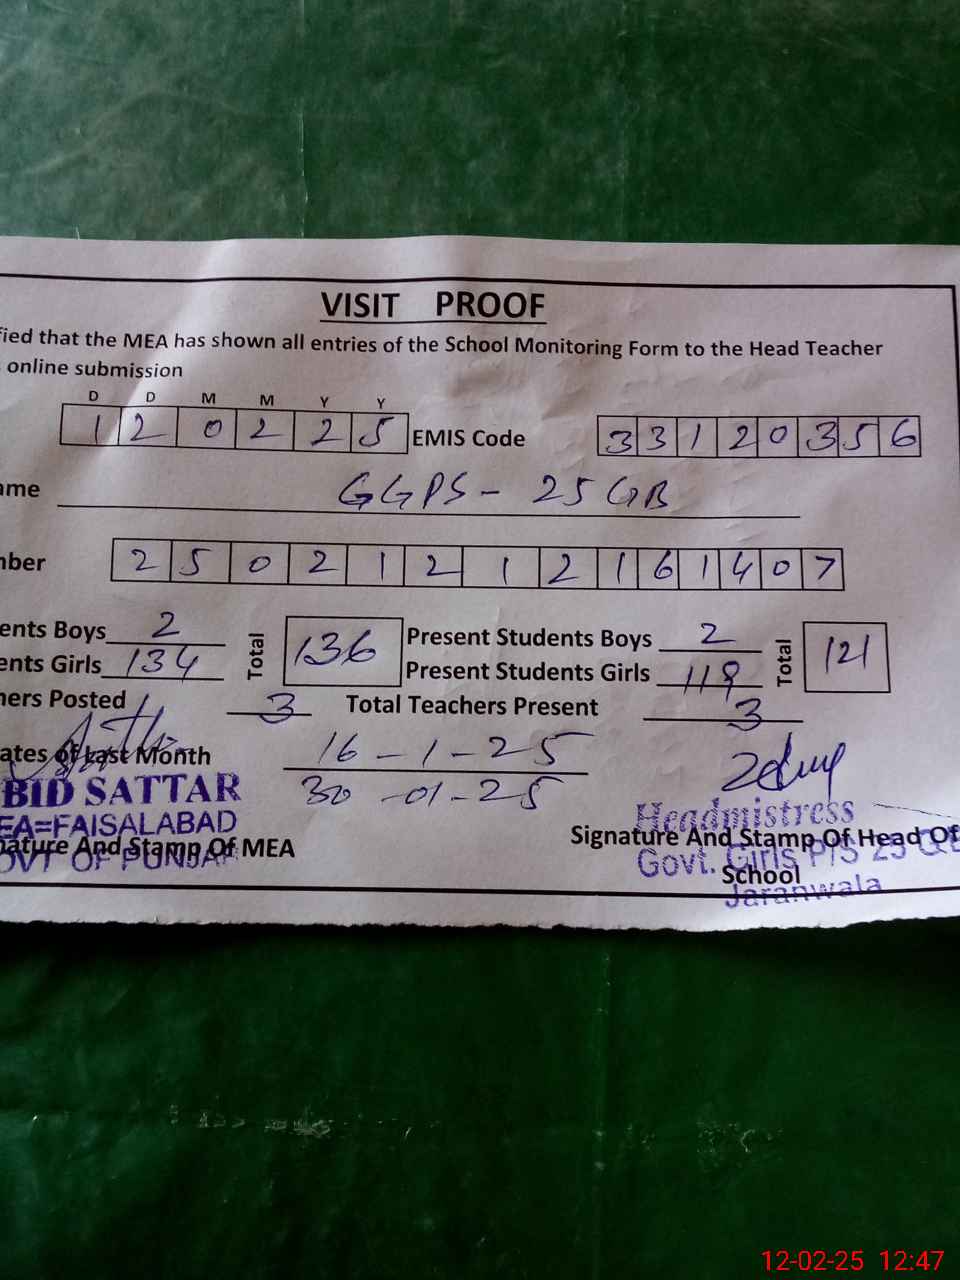 VISIT PROOF
fied that the MEA has shown all entries of the School Monitoring Form to the Head Teacher
online submission
D D M M Y Y
1 2 0 2 2 5 EMIS Code 3 3 1 2 0 3 5 6
ame GGPS - 25 GB
nber 2 5 0 2 1 2 1 2 1 6 1 4 0 7
ents Boys 2 Total 136 Present Students Boys 2 Total 121
ents Girls 134 Present Students Girls 119
hers Posted 3 Total Teachers Present 3
ates of Last Month 16-1-25
30-01-25
BID SATTAR
EA=FAISALABAD
nature And Stamp Of MEA
OVT OF PUNJAB
Headmistress
Signature And Stamp Of Head Of
Govt. Girls P/S 25 GB
School
Jaranwala
12-02-25 12:47